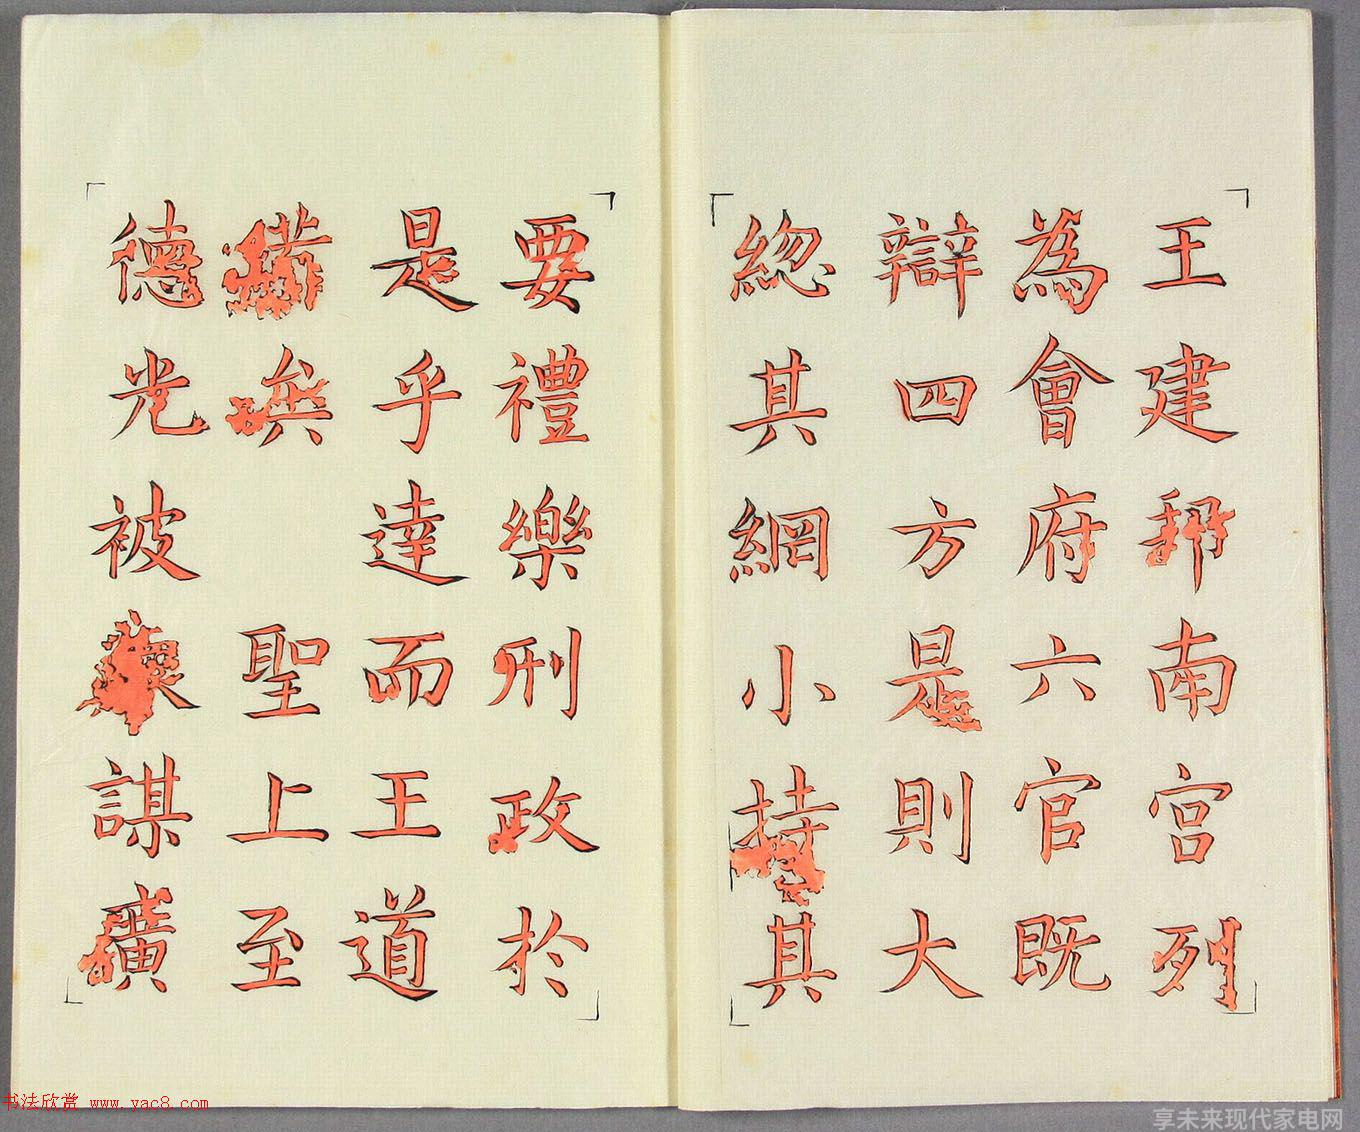 王建邦南宫列
為會府六官既
辯四方是則大
緫其綱小持其
要禮樂刑政於
是乎達而王道
備矣 聖上至
德光被
謀
書法欣赏 www.yac8.com
享未来现代家电网